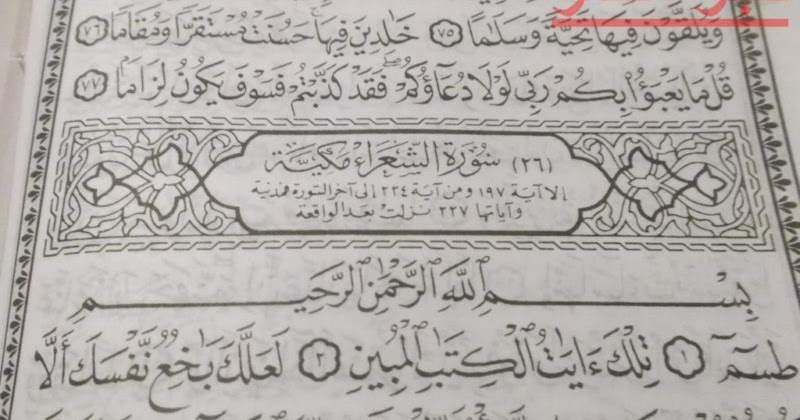 وَيُلَقَّوْنَ فِيهَا تَحِيَّةً وَسَلَٰمًا ٧٥ خَٰلِدِينَ فِيهَا ۚ حَسُنَتْ مُسْتَقَرًّا وَمُقَامًا ٧٦
قُلْ مَا يَعْبَؤُا۟ بِكُمْ رَبِّى لَوْلَا دُعَآؤُكُمْ ۖ فَقَدْ كَذَّبْتُمْ فَسَوْفَ يَكُونُ لِزَامًۢا ٧٧
(٢٦) سُورَةُ الشُّعَرَاءِ مَكِّيَّة
إلا آية ١٩٧ ومن آية ٢٢٤ إلى آخر السورة فمدنية
وآياتها ٢٢٧ نزلت بعد الواقعة
بِسْمِ ٱللَّهِ ٱلرَّحْمَٰنِ ٱلرَّحِيمِ
طسٓمٓ ١ تِلْكَ ءَايَٰتُ ٱلْكِتَٰبِ ٱلْمُبِينِ ٢ لَعَلَّكَ بَٰخِعٌ نَّفْسَكَ أَلَّا